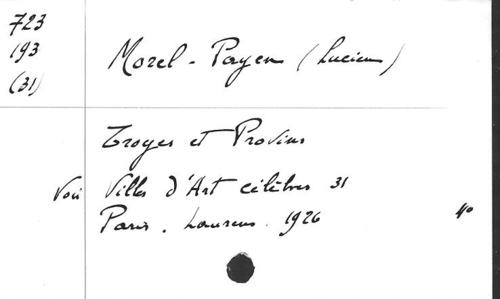 723
193
(31)
Morel-Payen (Lucien)
Troyes et Provins
Voir Villes d'Art célèbres 31
Paris. Laurens. 1926 4°